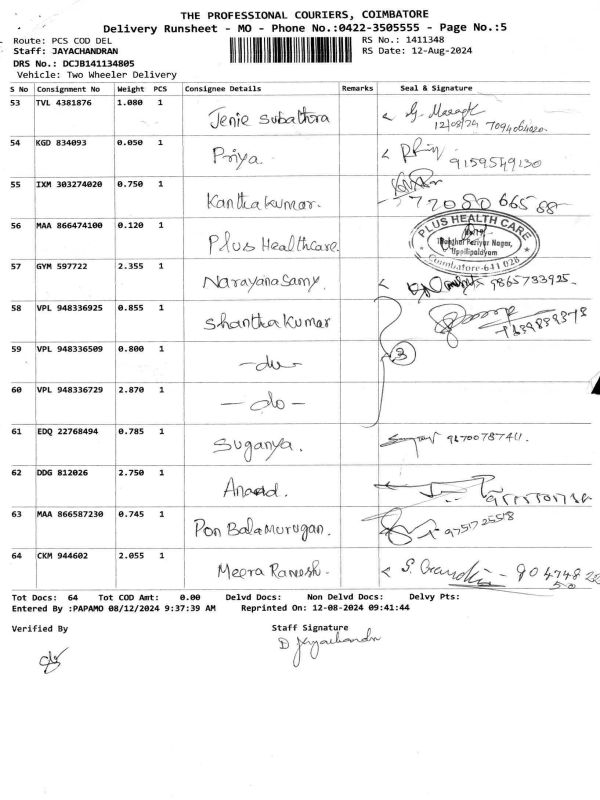 THE PROFESSIONAL COURIERS, COIMBATORE
Delivery Runsheet - MO - Phone No.:0422-3505555 - Page No.:5
Route: PCS COD DEL RS No.: 1411348
Staff: JAYACHANDRAN RS Date: 12-Aug-2024
DRS No.: DCJB141134805
Vehicle: Two Wheeler Delivery
S No Consignment No Weight PCS Consignee Details Remarks Seal & Signature
53 TVL 4381876 1.080 1 Jenie Subathra
12/08/24
54 KGD 834093 0.050 1 Priya. 9159549130
55 IXM 303274020 0.750 1 Kanthakumar.
56 MAA 866474100 0.120 1 Plus Healthcare.
PLUS HEALTH CARE
Periyar Nagar,
Uppilipalayam
Coimbatore-641 028
57 GYM 597722 2.355 1 Narayanasamy. 9865733925.
58 VPL 948336925 0.855 1 Shanthakumar
59 VPL 948336509 0.800 1 -do- 3
60 VPL 948336729 2.870 1 -do-
61 EDQ 22768494 0.785 1 Suganya.
62 DDG 812026 2.750 1 Anand.
63 MAA 866587230 0.745 1 Pon Balamurugan. 9751725518
64 CKM 944602 2.055 1 Meera Ranesh.
Tot Docs: 64 Tot COD Amt: 0.00 Delvd Docs: Non Delvd Docs: Delvy Pts:
Entered By :PAPAMO 08/12/2024 9:37:39 AM Reprinted On: 12-08-2024 09:41:44
Verified By Staff Signature
D Jayachandran